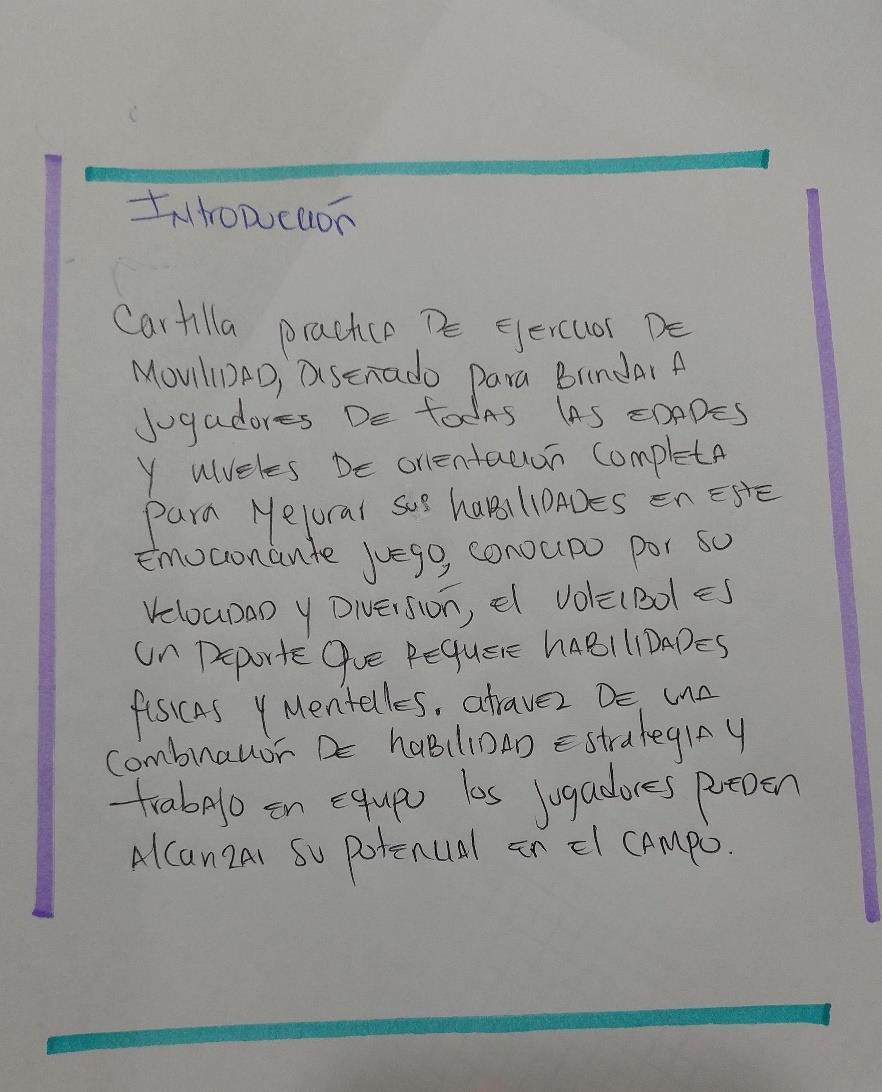 Introducción
Cartilla practica DE EjErcicios DE
MOViliDAD, DisEñado para BrinDAr A
JugadorES DE todAS lAS EDADES
Y nivElES DE oriEntación ComplEtA
para MEjorar sus haBiliDADES En EStE
EmocionantE juEgo, conociDO por su
VElociDAD y DIVErsión, El VolEiBol ES
Un DEportE QuE REQuEiE HABiliDADES
fisicAS Y MEntallES. atravEz DE unA
CombinacióN DE haBiliDAD EstratEgIA Y
trabAjo En Equipo los jugadorES puEDEn
AlcanzAr su potEncial En El CAMpo.